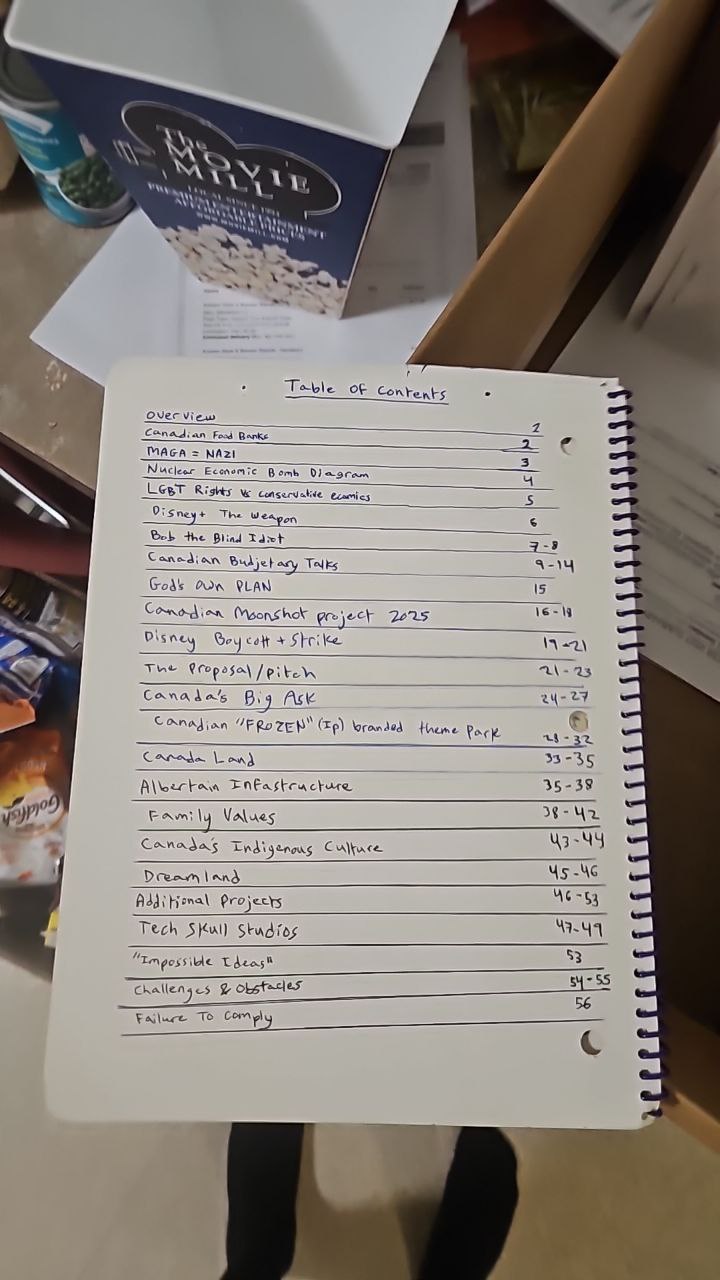 The
MOVIE
MILL
LOCAL SINCE
PREMIUM ENTERTAINMENT
AFFORDABLE PRICES
www.moviemill.com
Goldfish
Table of Contents
Overview 1
Canadian Food Banks 2
MAGA = NAZI 3
Nuclear Economic Bomb Diagram 4
LGBT Rights Vs conservative ecomics 5
Disney+ The weapon 6
Bob the Blind Idiot 7-8
Canadian Budjetary Talks 9-14
God's own PLAN 15
Canadian Moonshot project 2025 16-18
Disney Boycott + Strike 19-21
The Proposal/pitch 21-23
Canada's Big Ask 24-27
Canadian "FROZEN" (Ip) branded theme Park 28-32
Canada Land 33-35
Albertain Infastructure 35-38
Family Values 38-42
Canada's Indigenous Culture 43-44
Dreamland 45-46
Additional Projects 46-53
Tech Skull Studios 47-49
"Impossible Ideas" 53
Challenges & Obstacles 54-55
Failure To Comply 56